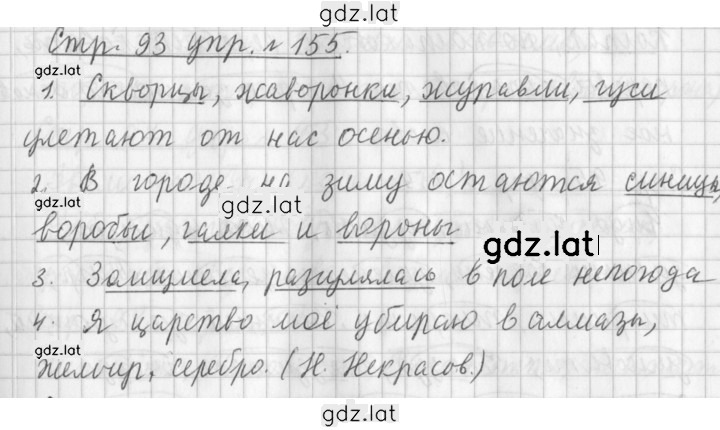 gdz.lat
Стр. 93 упр. № 155.
gdz.lat
1. Скворцы, жаворонки, журавли, гуси
улетают от нас осенью.
2. В городе на зиму остаются синицы,
gdz.lat
gdz.lat
воробьи, галки и вороны
gdz.lat
3. Зашумела, разгулялась в поле непогода
4. Я царство моё убираю в алмазы,
gdz.lat
жемчуг, серебро. (Н. Некрасов.)
gdz.lat